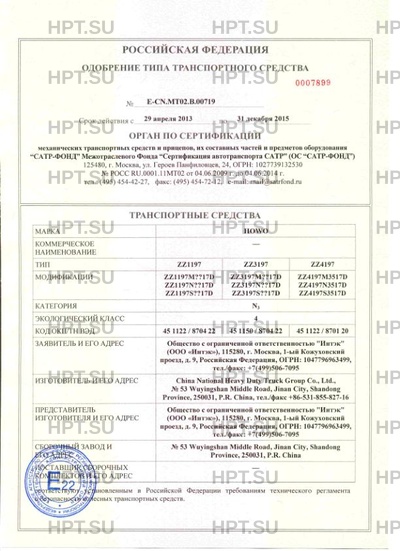 РОССИЙСКАЯ ФЕДЕРАЦИЯ
ОДОБРЕНИЕ ТИПА ТРАНСПОРТНОГО СРЕДСТВА
0007899
№ E-CN.MT02.B.00719
Срок действия с 29 апреля 2013 по 31 декабря 2015
ОРГАН ПО СЕРТИФИКАЦИИ
механических транспортных средств и прицепов, их составных частей и предметов оборудования
“САТР-ФОНД” Межотраслевого Фонда “Сертификация автотранспорта САТР” (ОС “САТР-ФОНД”)
125480, г. Москва, ул. Героев Панфиловцев, 24, ОГРН: 1027739132530
№ РОСС RU.0001.11МТ02 от 04.06.2009 г. до 04.06.2014 г.
тел.:(495) 454-42-27, факс: (495) 454-72-12, e-mail: mail@satrfond.ru
ТРАНСПОРТНЫЕ СРЕДСТВА
МАРКА HOWO
КОММЕРЧЕСКОЕ НАИМЕНОВАНИЕ —
ТИП ZZ1197 ZZ3197 ZZ4197
МОДИФИКАЦИИ ZZ1197M??17D ZZ3197M??17D ZZ4197M3517D
ZZ1197N??17D ZZ3197N??17D ZZ4197N3517D
ZZ1197S??17D ZZ3197S??17D ZZ4197S3517D
КАТЕГОРИЯ N3
ЭКОЛОГИЧЕСКИЙ КЛАСС 4
КОД ОКП/ТН ВЭД 45 1122 / 8704 22 45 1150 / 8704 22 45 1122 / 8701 20
ЗАЯВИТЕЛЬ И ЕГО АДРЕС Общество с ограниченной ответственностью "Интэк"
(ООО «Интэк»), 115280, г. Москва, 1-ый Кожуховский
проезд, д. 9, Российская Федерация, ОГРН: 1047796963499,
тел./факс: +7(499)506-7095
ИЗГОТОВИТЕЛЬ И ЕГО АДРЕС China National Heavy Duty Truck Group Co., Ltd.,
№ 53 Wuyingshan Middle Road, Jinan City, Shandong
Province, 250031, P.R. China, тел./факс +86-531-855-827-16
ПРЕДСТАВИТЕЛЬ ИЗГОТОВИТЕЛЯ И ЕГО АДРЕС Общество с ограниченной ответственностью "Интэк"
(ООО «Интэк»), 115280, г. Москва, 1-ый Кожуховский
проезд, д. 9, Российская Федерация, ОГРН: 1047796963499,
тел./факс: +7(499)506-7095
СБОРОЧНЫЙ ЗАВОД И ЕГО АДРЕС № 53 Wuyingshan Middle Road, Jinan City, Shandong
Province, 250031, P.R. China
ПОСТАВЩИК СБОРОЧНЫХ КОМПЛЕКТОВ И ЕГО АДРЕС —
соответствуют установленным в Российской Федерации требованиям технического регламента
о безопасности колесных транспортных средств.
E22
HPT.SU